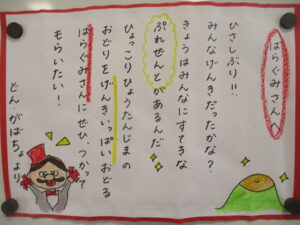 はらぐみさんへ
ひさしぶり!!
みんなげんきだったかな?
きょうはみんなにすてきな
ぷれぜんとがあるんだ
ひょっこりひょうたんじまの
おどりをげんきいっぱいおどる
はらぐみさんにぜひ、つかって
もらいたい!
どん・がばちょより